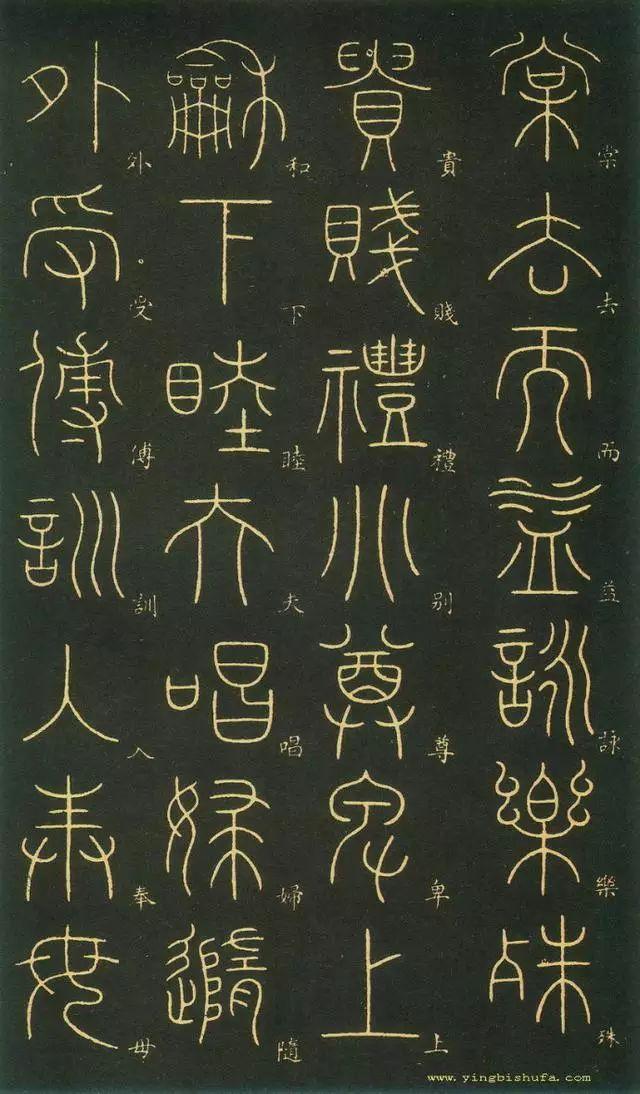 棠去而益詠樂殊
貴賤禮別尊卑上
和下睦夫唱婦隨
外受傅訓入奉母
www.yingbishufa.com